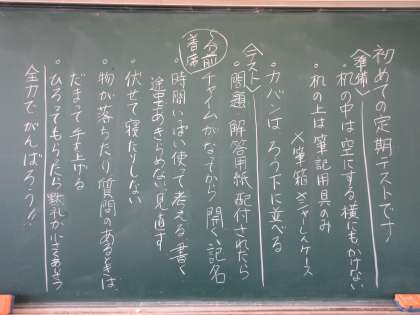 初めての定期テストです
〈準備〉
・机の中は空にする 横にもかけない
・机の上は筆記用具のみ
×筆箱
・カバンは ろう下に並べる
〈テスト〉
・問題 解答用紙 配付されたら
5分前
着席
チャイムがなってから開く、記名
・時間いっぱい使って考える 書く
途中であきらめない 見直す
・伏せて寝たりしない
・物が落ちたり 質問のあるときは、
だまって手を上げる
・ひろってもらったら 敬礼か小さくありがとう
全力でがんばろう!!